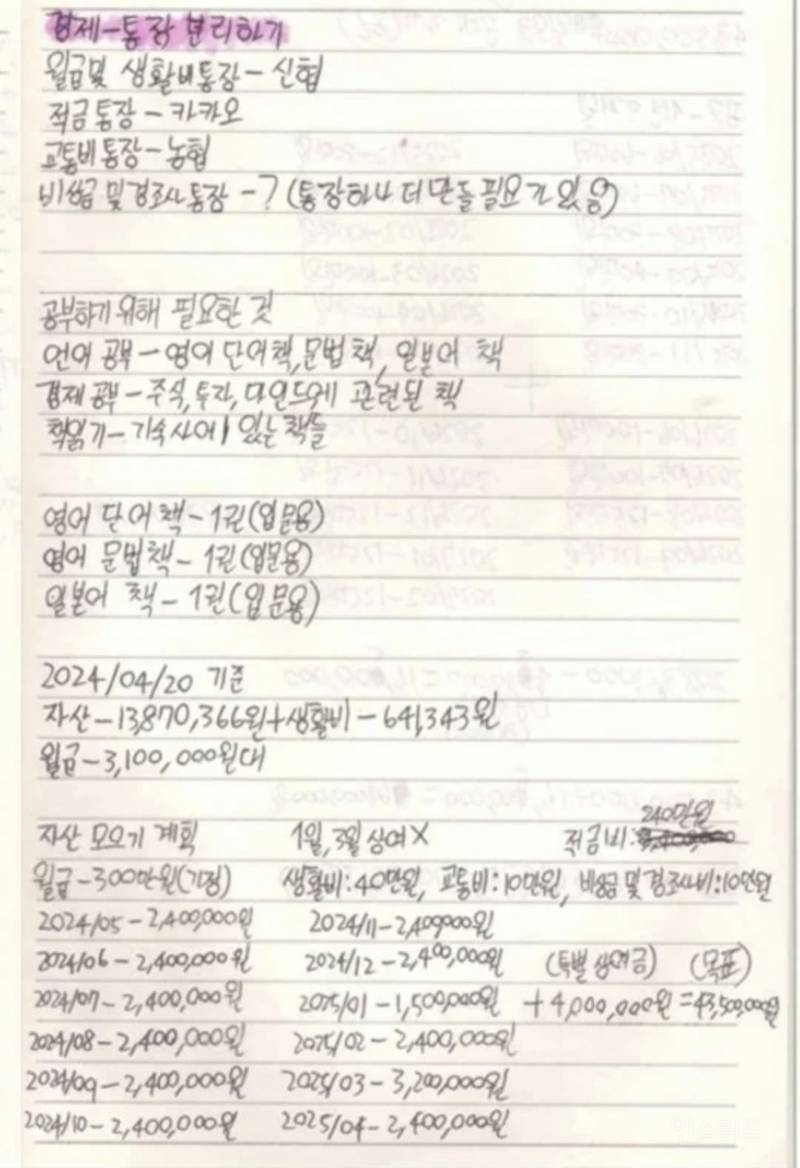 경제-통장 분리하기
월급 및 생활비통장 - 신협
적금통장 - 카카오
교통비통장 - 농협
비상금 및 경조사통장 - ? (통장하나 더 만들 필요가 있음)
공부하기 위해 필요한 것
언어 공부 - 영어 단어책, 문법책, 일본어 책
경제 공부 - 주식, 투자, 마인드에 관련된 책
책읽기 - 기숙사에 있는 책들
영어 단어책 - 1권(입문용)
영어 문법책 - 1권(입문용)
일본어 책 - 1권(입문용)
2024/04/20 기준
자산 - 13,870,366원 + 생활비 - 641,343원
월급 - 3,100,000원대
240만원
자산 모으기 계획 1월, 3월 상여X 적금비:
월급 - 300만원(가정) 생활비:40만원, 교통비:10만원, 비상금 및 경조사비:10만원
2024/05 - 2,400,000원 2024/11 - 2,400,000원
2024/06 - 2,400,000원 2024/12 - 2,400,000원 (특별상여금) (목표)
2024/07 - 2,400,000원 2025/01 - 1,500,000원 + 4,000,000원 = 43,500,000원
2024/08 - 2,400,000원 2025/02 - 2,400,000원
2024/09 - 2,400,000원 2025/03 - 3,200,000원
2024/10 - 2,400,000원 2025/04 - 2,400,000원
인스티즈